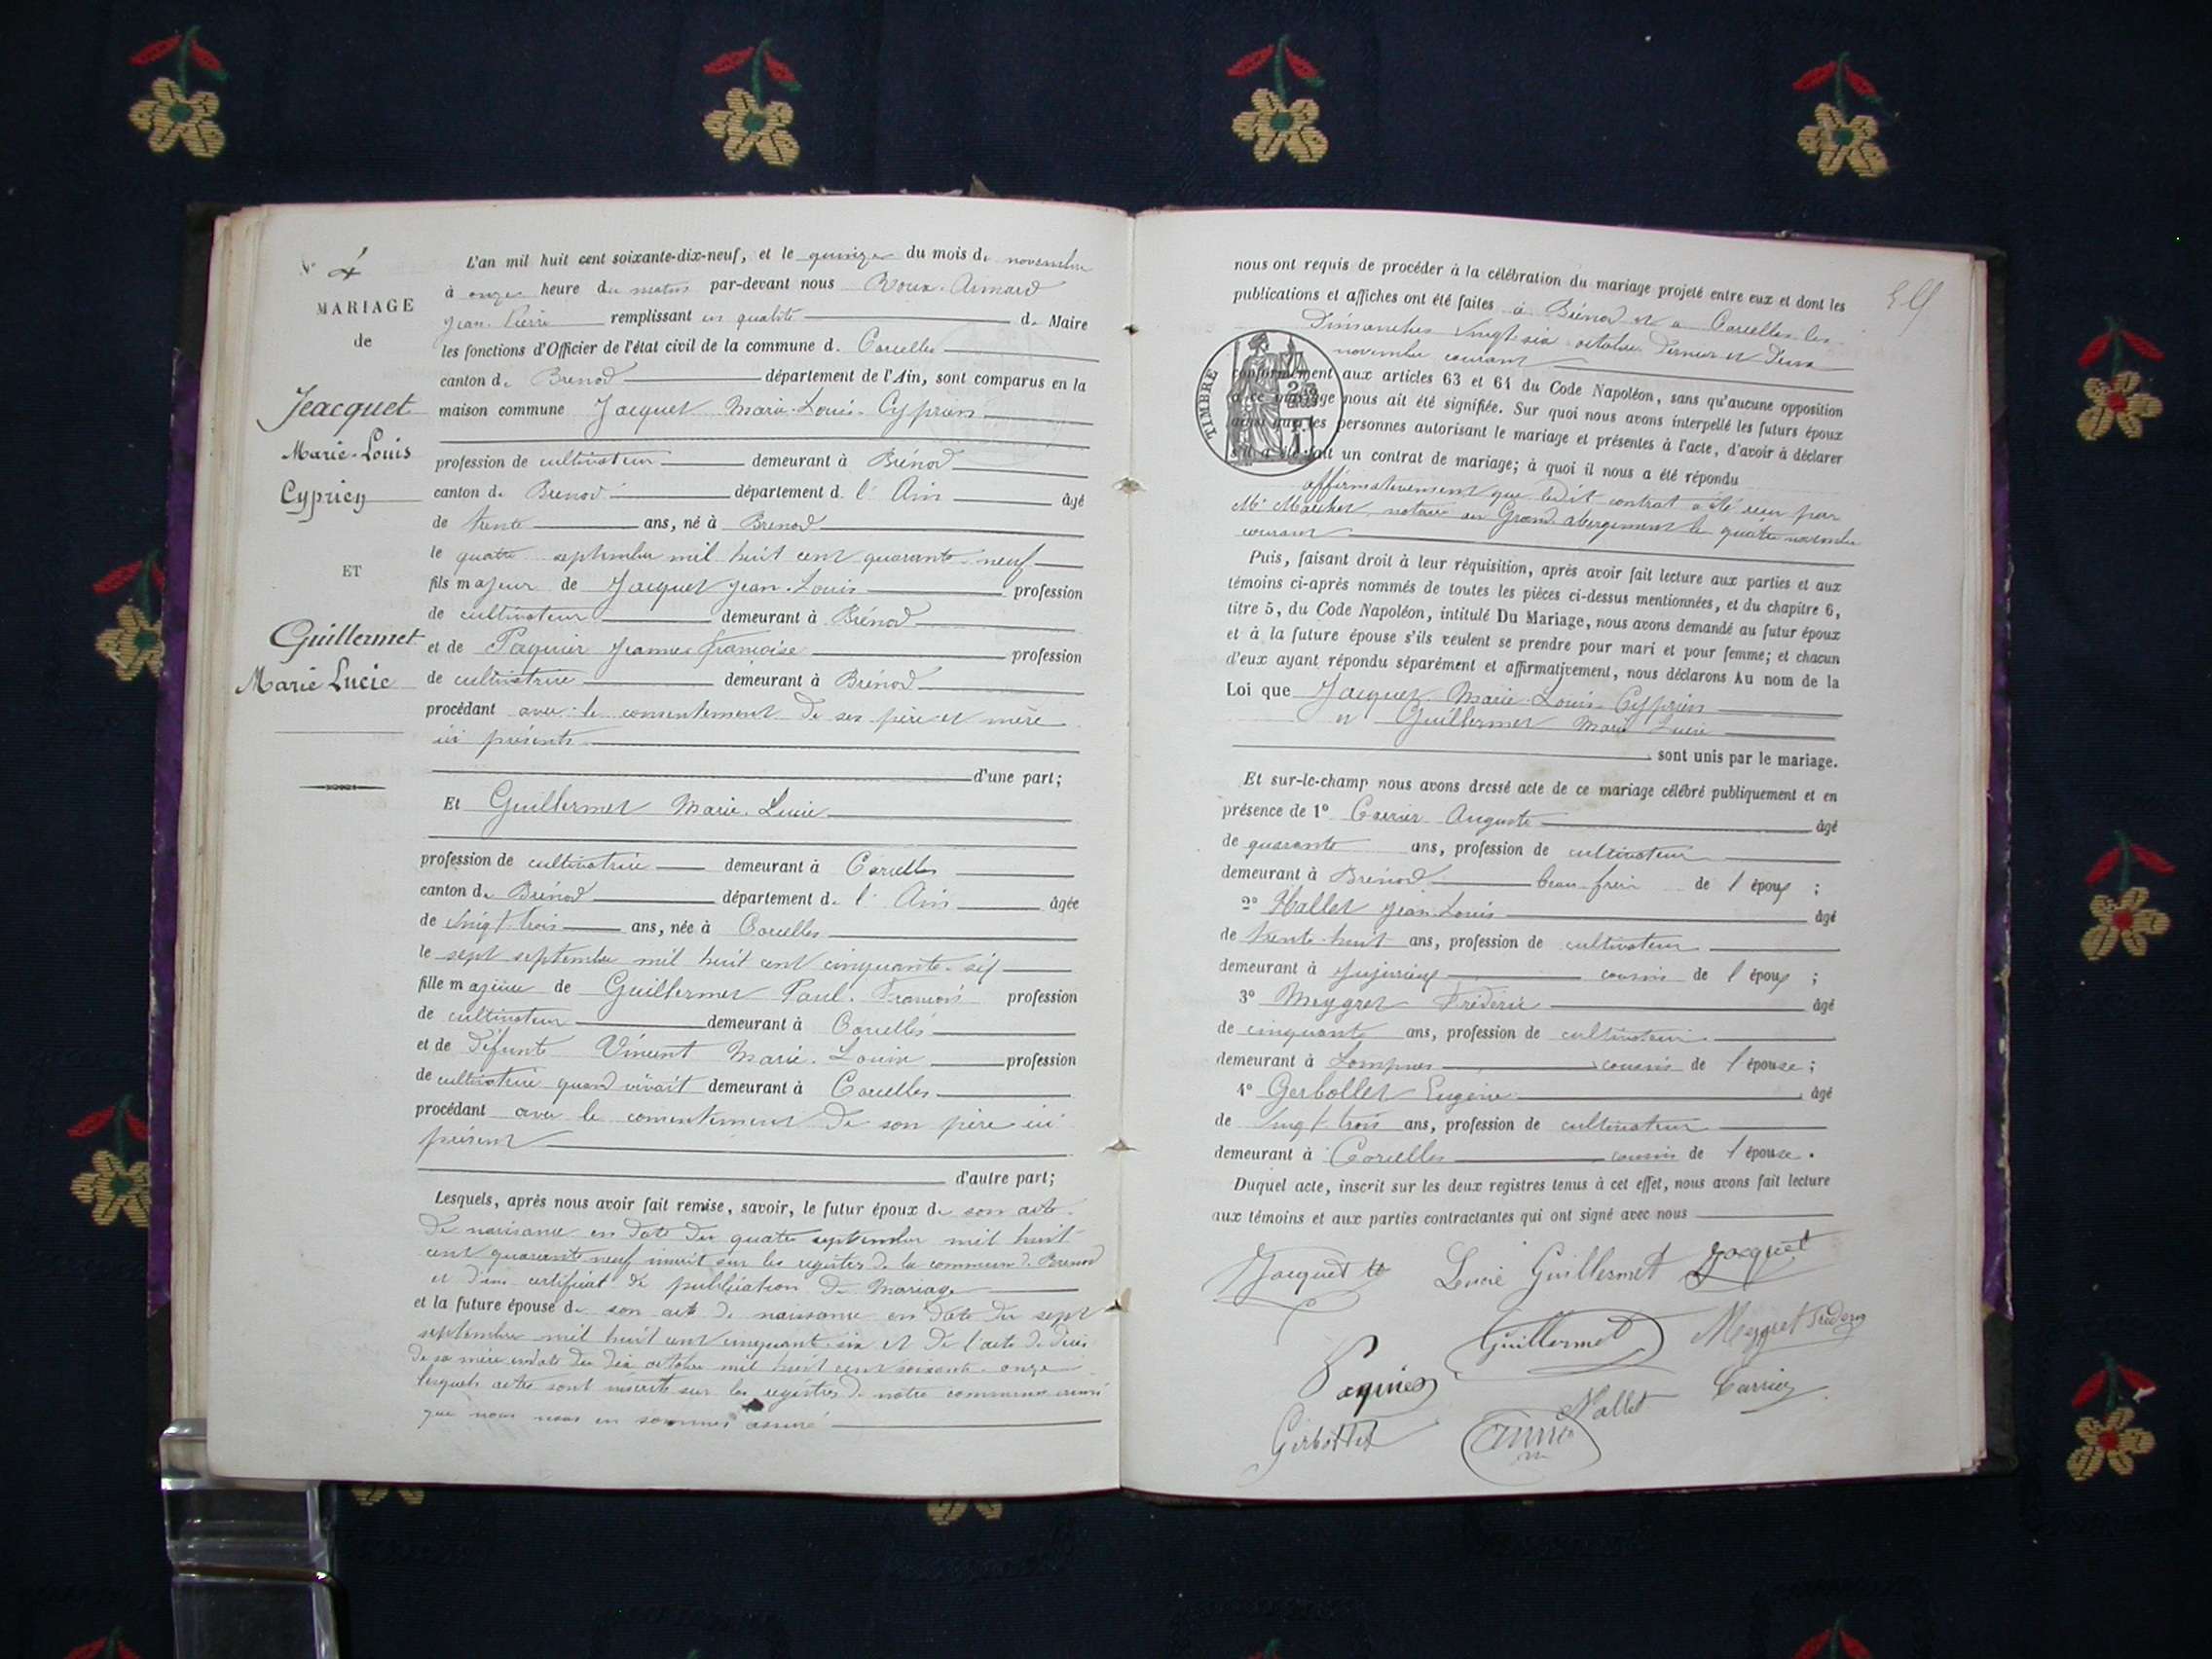 N° 4
MARIAGE
de
Jeacquet
Marie-Louis
Cyprien
ET
Guillermet
Marie Lucie
L'an mil huit cent soixante-dix-neuf, et le quinze du mois de novembre
à onze heure du matin par-devant nous Roux-Aimard
Jean-Pierre remplissant en qualité de Maire
les fonctions d'Officier de l'état civil de la commune de Corcelles
canton de Brenod département de l'Ain, sont comparus en la
maison commune Jacquet Marie-Louis-Cyprien
profession de cultivateur demeurant à Brénod
canton de Brenod département de l'Ain âgé
de trente ans, né à Brenod
le quatre septembre mil huit cent quarante-neuf
fils majeur de Jacquet Jean-Louis profession
de cultivateur demeurant à Brénod
et de Paquier Jeanne-Françoise profession
de cultivatrice demeurant à Brénod
procédant avec le consentement de ses père et mère
ici présents
d'une part;
Et Guillermet Marie-Lucie
profession de cultivatrice demeurant à Corcelles
canton de Brénod département de l'Ain âgée
de vingt-trois ans, née à Corcelles
le sept septembre mil huit cent cinquante-six
fille majeure de Guillermet Paul-François profession
de cultivateur demeurant à Corcelles
et de défunte Vincent Marie-Louise profession
de cultivatrice quand vivait demeurant à Corcelles
procédant avec le consentement de son père ici
présent
d'autre part;
Lesquels, après nous avoir fait remise, savoir, le futur époux de son acte
de naissance en date du quatre septembre mil huit
cent quarante neuf inscrit sur les registres de la commune de Brenod
et d'un certificat de publication de mariage
et la future épouse de son acte de naissance en date du sept
septembre mil huit cent cinquante six et de l'acte de décès
de sa mère en date du dix octobre mil huit cent soixante-onze
lesquels actes sont inscrits sur les registres de notre commune ainsi
que nous nous en sommes assuré
nous ont requis de procéder à la célébration du mariage projeté entre eux et dont les
publications et affiches ont été faites à Brénod et à Corcelles les
Dimanches vingt six octobre dernier et deux
novembre courant
TIMBRE
conformément aux articles 63 et 64 du Code Napoléon, sans qu'aucune opposition
à ce mariage nous ait été signifiée. Sur quoi nous avons interpellé les futurs époux
ainsi que les personnes autorisant le mariage et présentes à l'acte, d'avoir à déclarer
s'il a été fait un contrat de mariage; à quoi il nous a été répondu
affirmativement que ledit contrat a été reçu par
Me notaire au Grand abergement le quatre novembre
courant
Puis, faisant droit à leur réquisition, après avoir fait lecture aux parties et aux
témoins ci-après nommés de toutes les pièces ci-dessus mentionnées, et du chapitre 6,
titre 5, du Code Napoléon, intitulé Du Mariage, nous avons demandé au futur époux
et à la future épouse s'ils veulent se prendre pour mari et pour femme; et chacun
d'eux ayant répondu séparément et affirmativement, nous déclarons Au nom de la
Loi que Jacquet Marie-Louis-Cyprien
et Guillermet Marie Lucie
sont unis par le mariage.
Et sur-le-champ nous avons dressé acte de ce mariage célébré publiquement et en
présence de 1° Carrier Auguste âgé
de quarante ans, profession de cultivateur
demeurant à Brénod beau-frère de l'époux ;
2° Hallet Jean-Louis âgé
de trente-huit ans, profession de cultivateur
demeurant à Jujurieux cousin de l'époux ;
3° Meygret Frédéric âgé
de cinquante ans, profession de cultivateur
demeurant à Lompnes cousin de l'épouse ;
4° Gerbollet Eugène âgé
de vingt trois ans, profession de cultivateur
demeurant à Corcelles cousin de l'épouse .
Duquel acte, inscrit sur les deux registres tenus à cet effet, nous avons fait lecture
aux témoins et aux parties contractantes qui ont signé avec nous
Jacquet Lucie Guillermet Jacquet
Guillermet Meygret Frédéric
Paquier
Nallet Carrier
Gerbollet